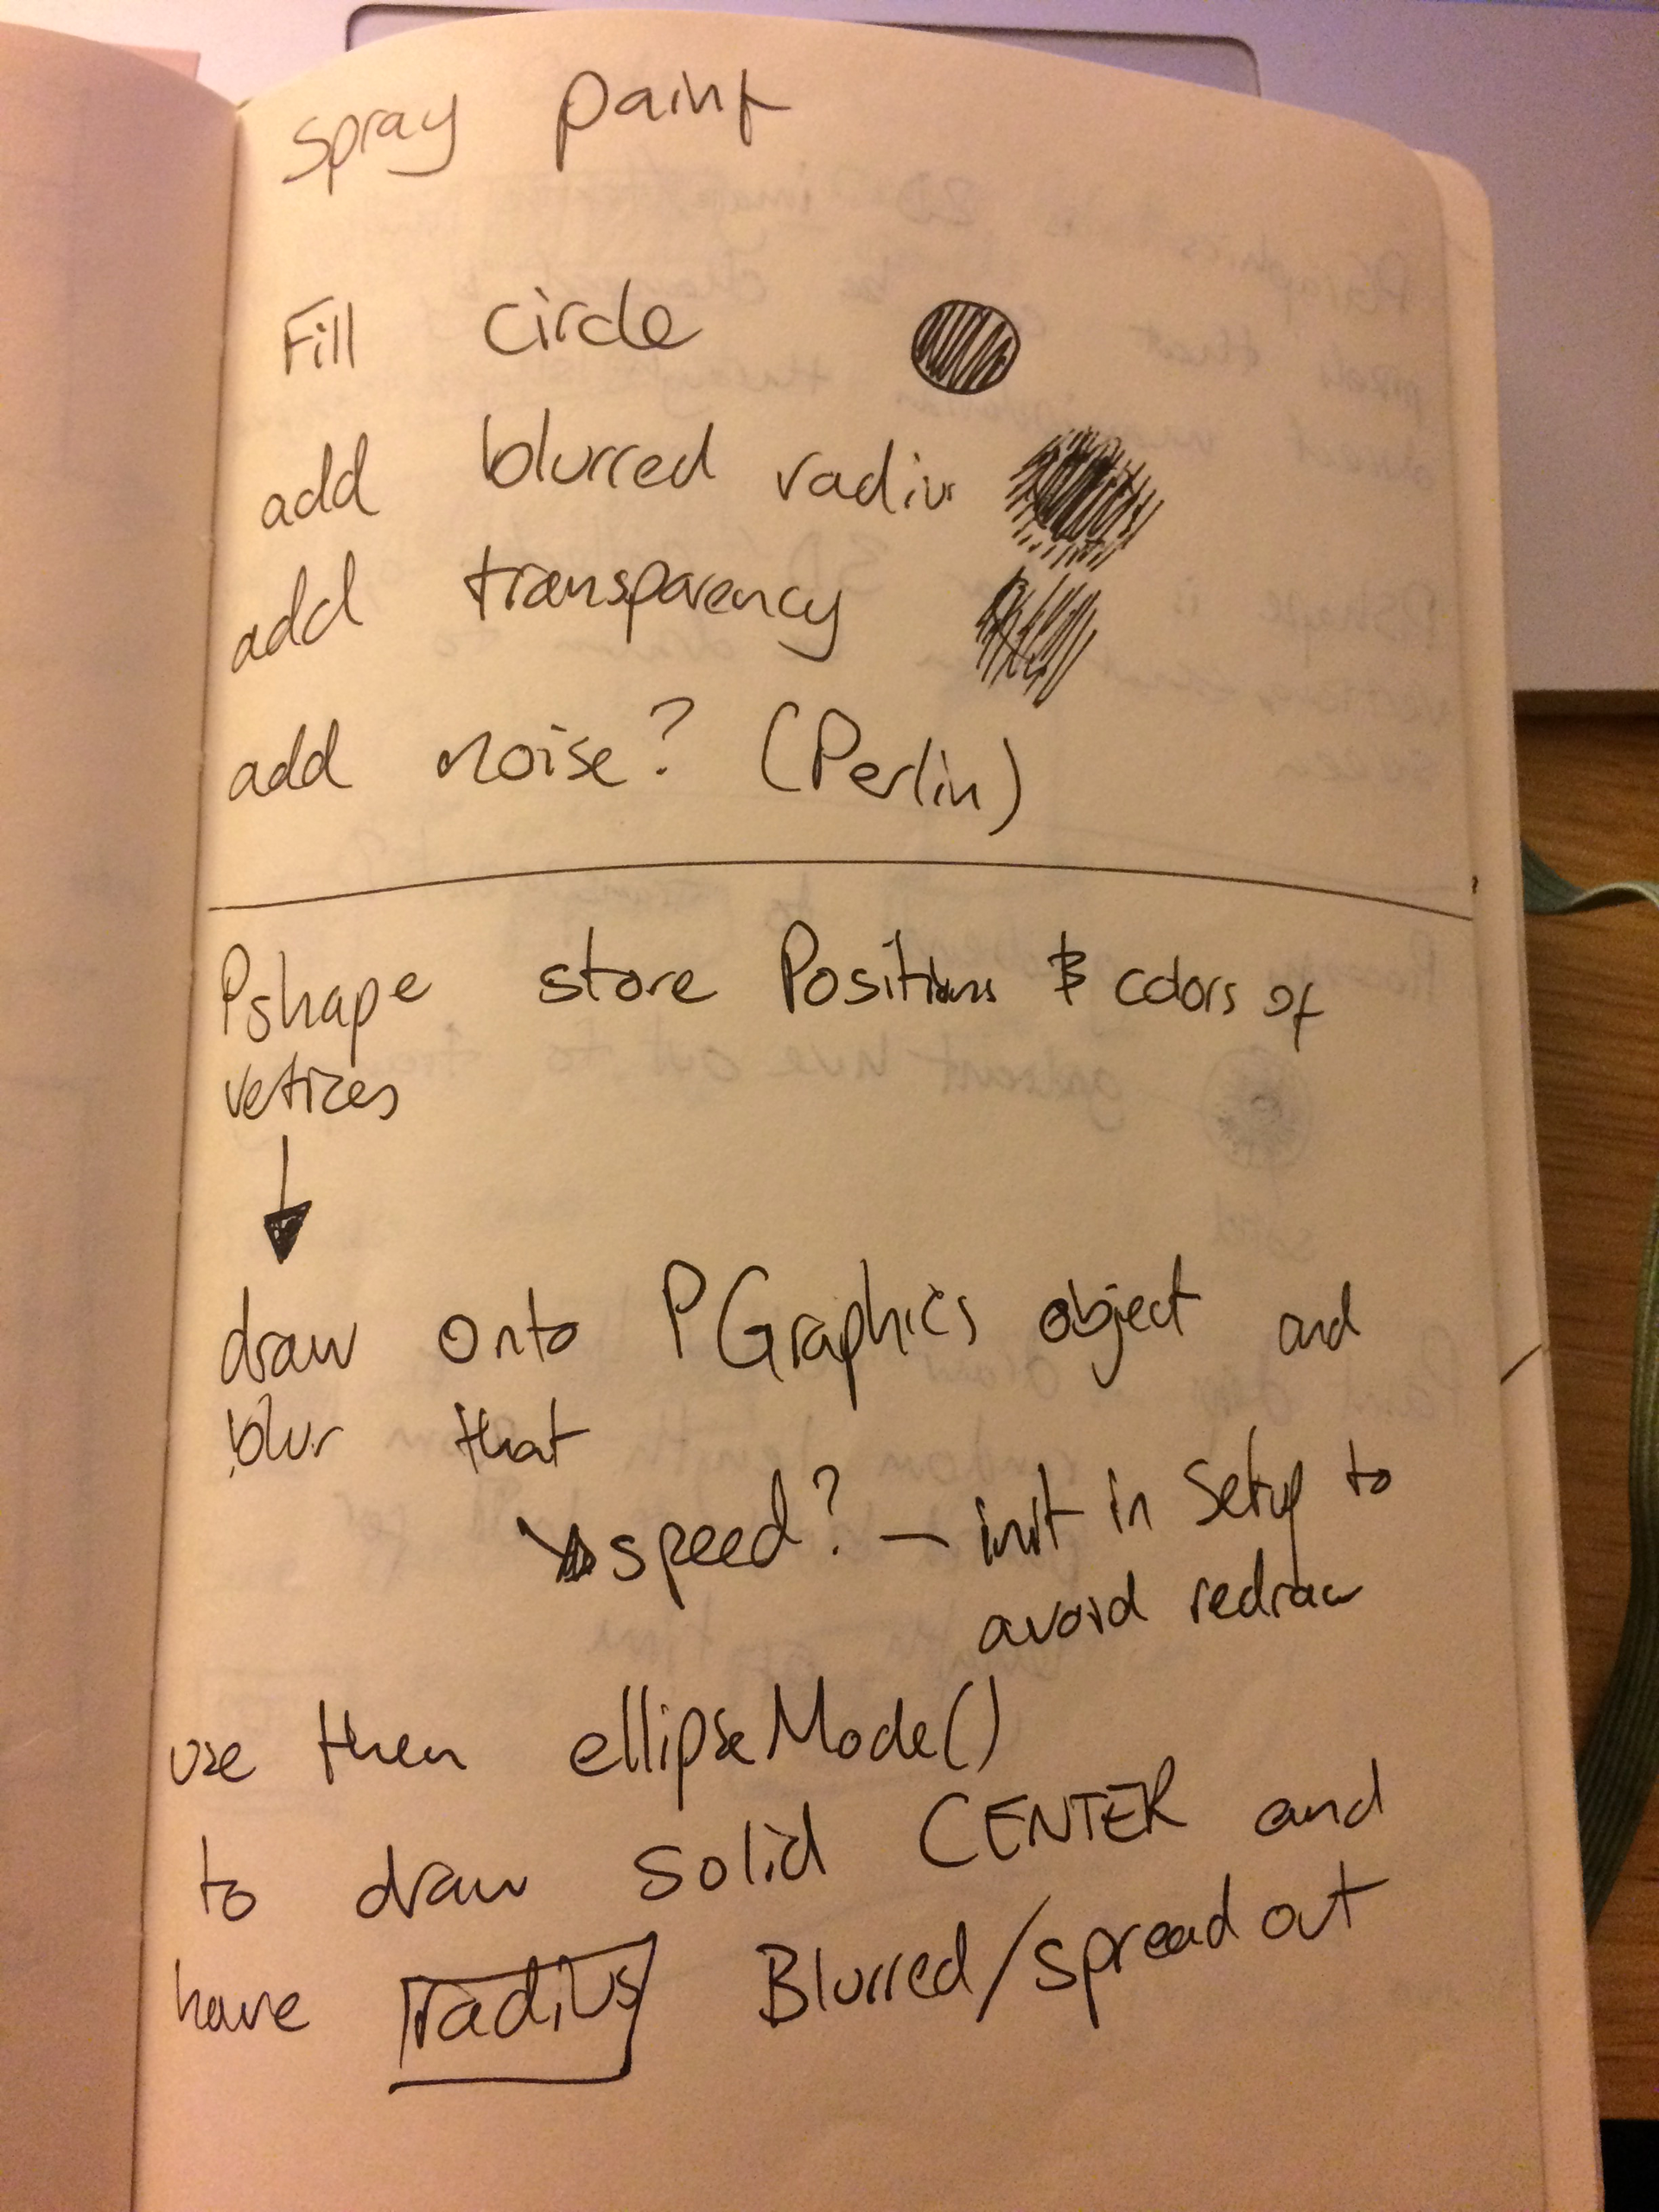 spray paint
Fill circle
add blurred radius
add transparency
add noise? (Perlin)
Pshape store Positions & colors of
vetices
draw onto PGraphics object and
blur that
speed? — init in setup to
avoid redraw
use then ellipseMode()
to draw solid CENTER and
have radius Blurred/spread out